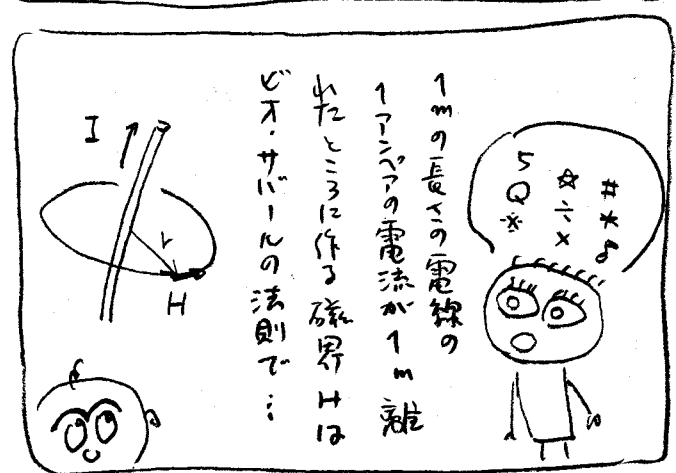 #*&
☆÷×
5Q※
1mの長さの電線の
1アンペアの電流が1m離
れたところに作る磁界Hは
ビオ・サバールの法則で…
I
r
H